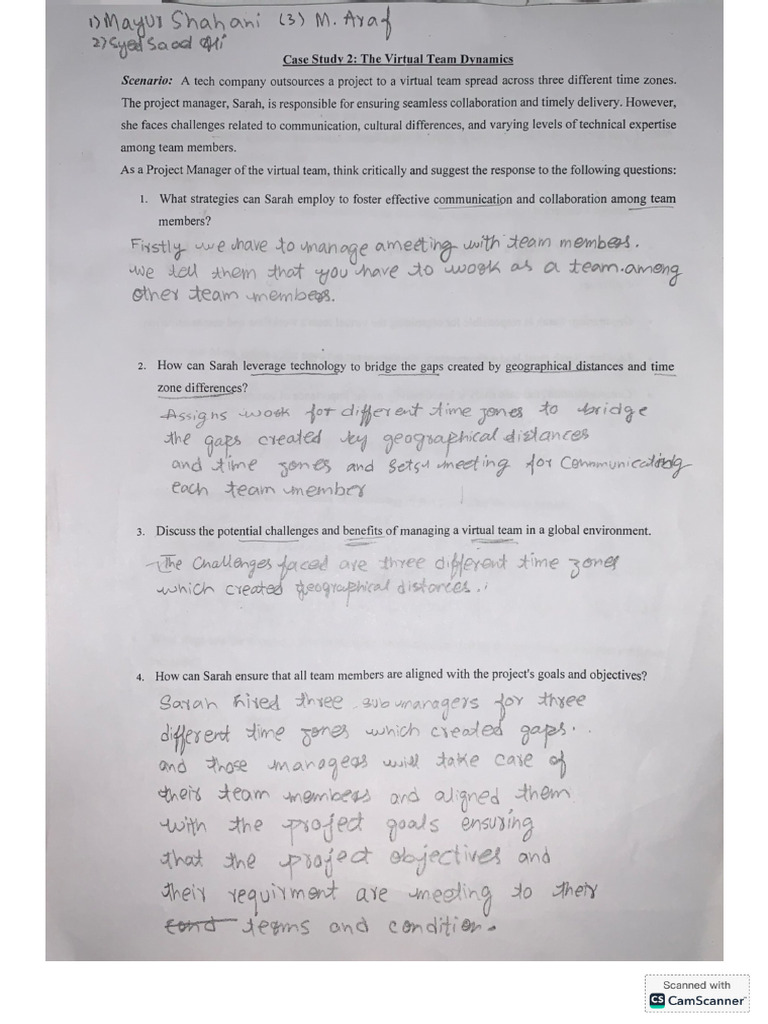 1) Mayur Shahani (3) M. Araf
2) Syed Saad Ali
Case Study 2: The Virtual Team Dynamics
Scenario: A tech company outsources a project to a virtual team spread across three different time zones.
The project manager, Sarah, is responsible for ensuring seamless collaboration and timely delivery. However,
she faces challenges related to communication, cultural differences, and varying levels of technical expertise
among team members.
As a Project Manager of the virtual team, think critically and suggest the response to the following questions:
1. What strategies can Sarah employ to foster effective communication and collaboration among team
members?
Firstly we have to manage a meeting with team members.
we tell them that you have to work as a team. among
other team members.
2. How can Sarah leverage technology to bridge the gaps created by geographical distances and time
zone differences?
Assigns work for different time zones to bridge
the gaps created by geographical distances
and time zones and sets meeting for Communicating
each team member
3. Discuss the potential challenges and benefits of managing a virtual team in a global environment.
The challenges faced are three different time zones
which created geographical distances.
4. How can Sarah ensure that all team members are aligned with the project's goals and objectives?
Sarah hired three sub managers for three
different time zones which created gaps.
and those managers will take care of
their team members and aligned them
with the project goals ensuring
that the project objectives and
their requirment are meeting to their
terms and condition.
Scanned with
CS CamScanner